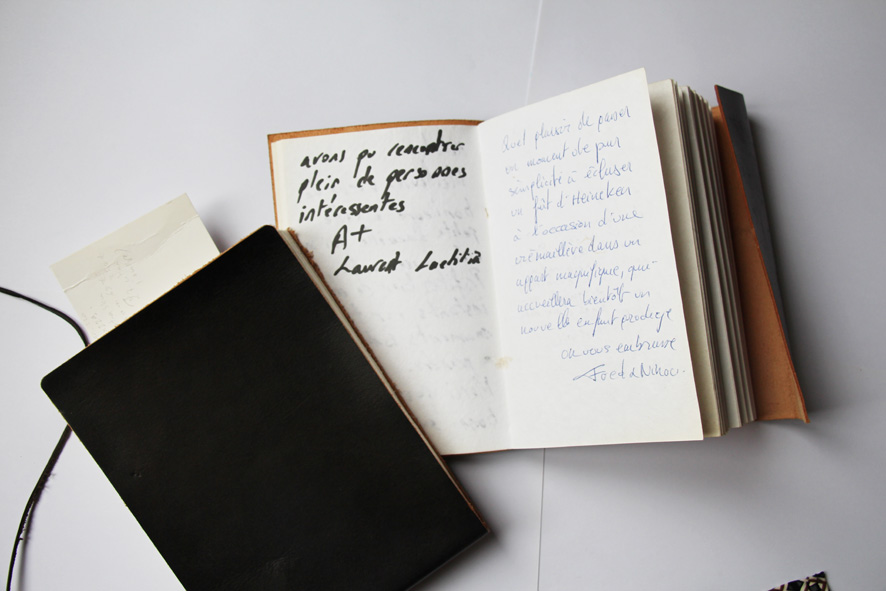 avons pu rencontrer
plein de personnes
intéressentes
A+
Laurent Laetitia
Quel plaisir de passer
un moment de pur
simplicité à écluser
un fût d'Heineken
à l'occasion d'une
crémaillère dans un
appart magnifique, qui
accueillera bientôt un
nouvel enfant prodige
on vous embrasse